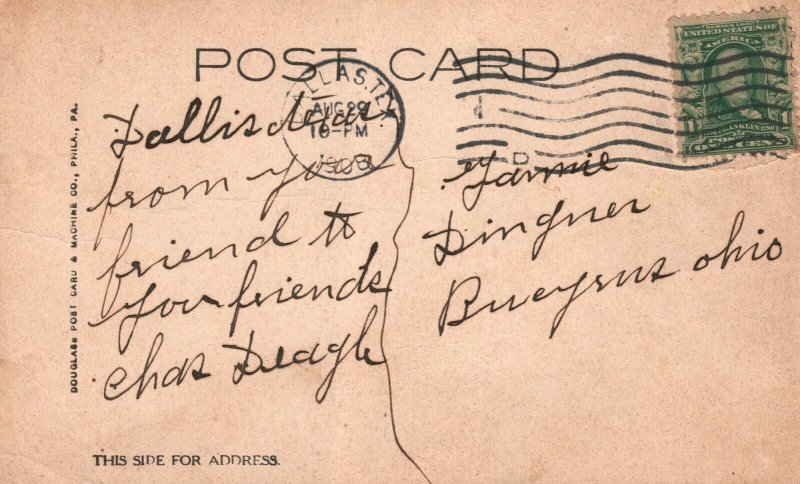 POST CARD
SERIES 1902
UNITED STATES OF
AMERICA
FRANKLIN
ONE CENT
DALLAS, TEX.
AUG 29
10-PM
1908
D
DOUGLASS POST CARD & MACHINE CO., PHILA., PA.
Dallis
from your
friend to
your friends
Chas Deagle
Dingner
Bucyrus ohio
THIS SIDE FOR ADDRESS.